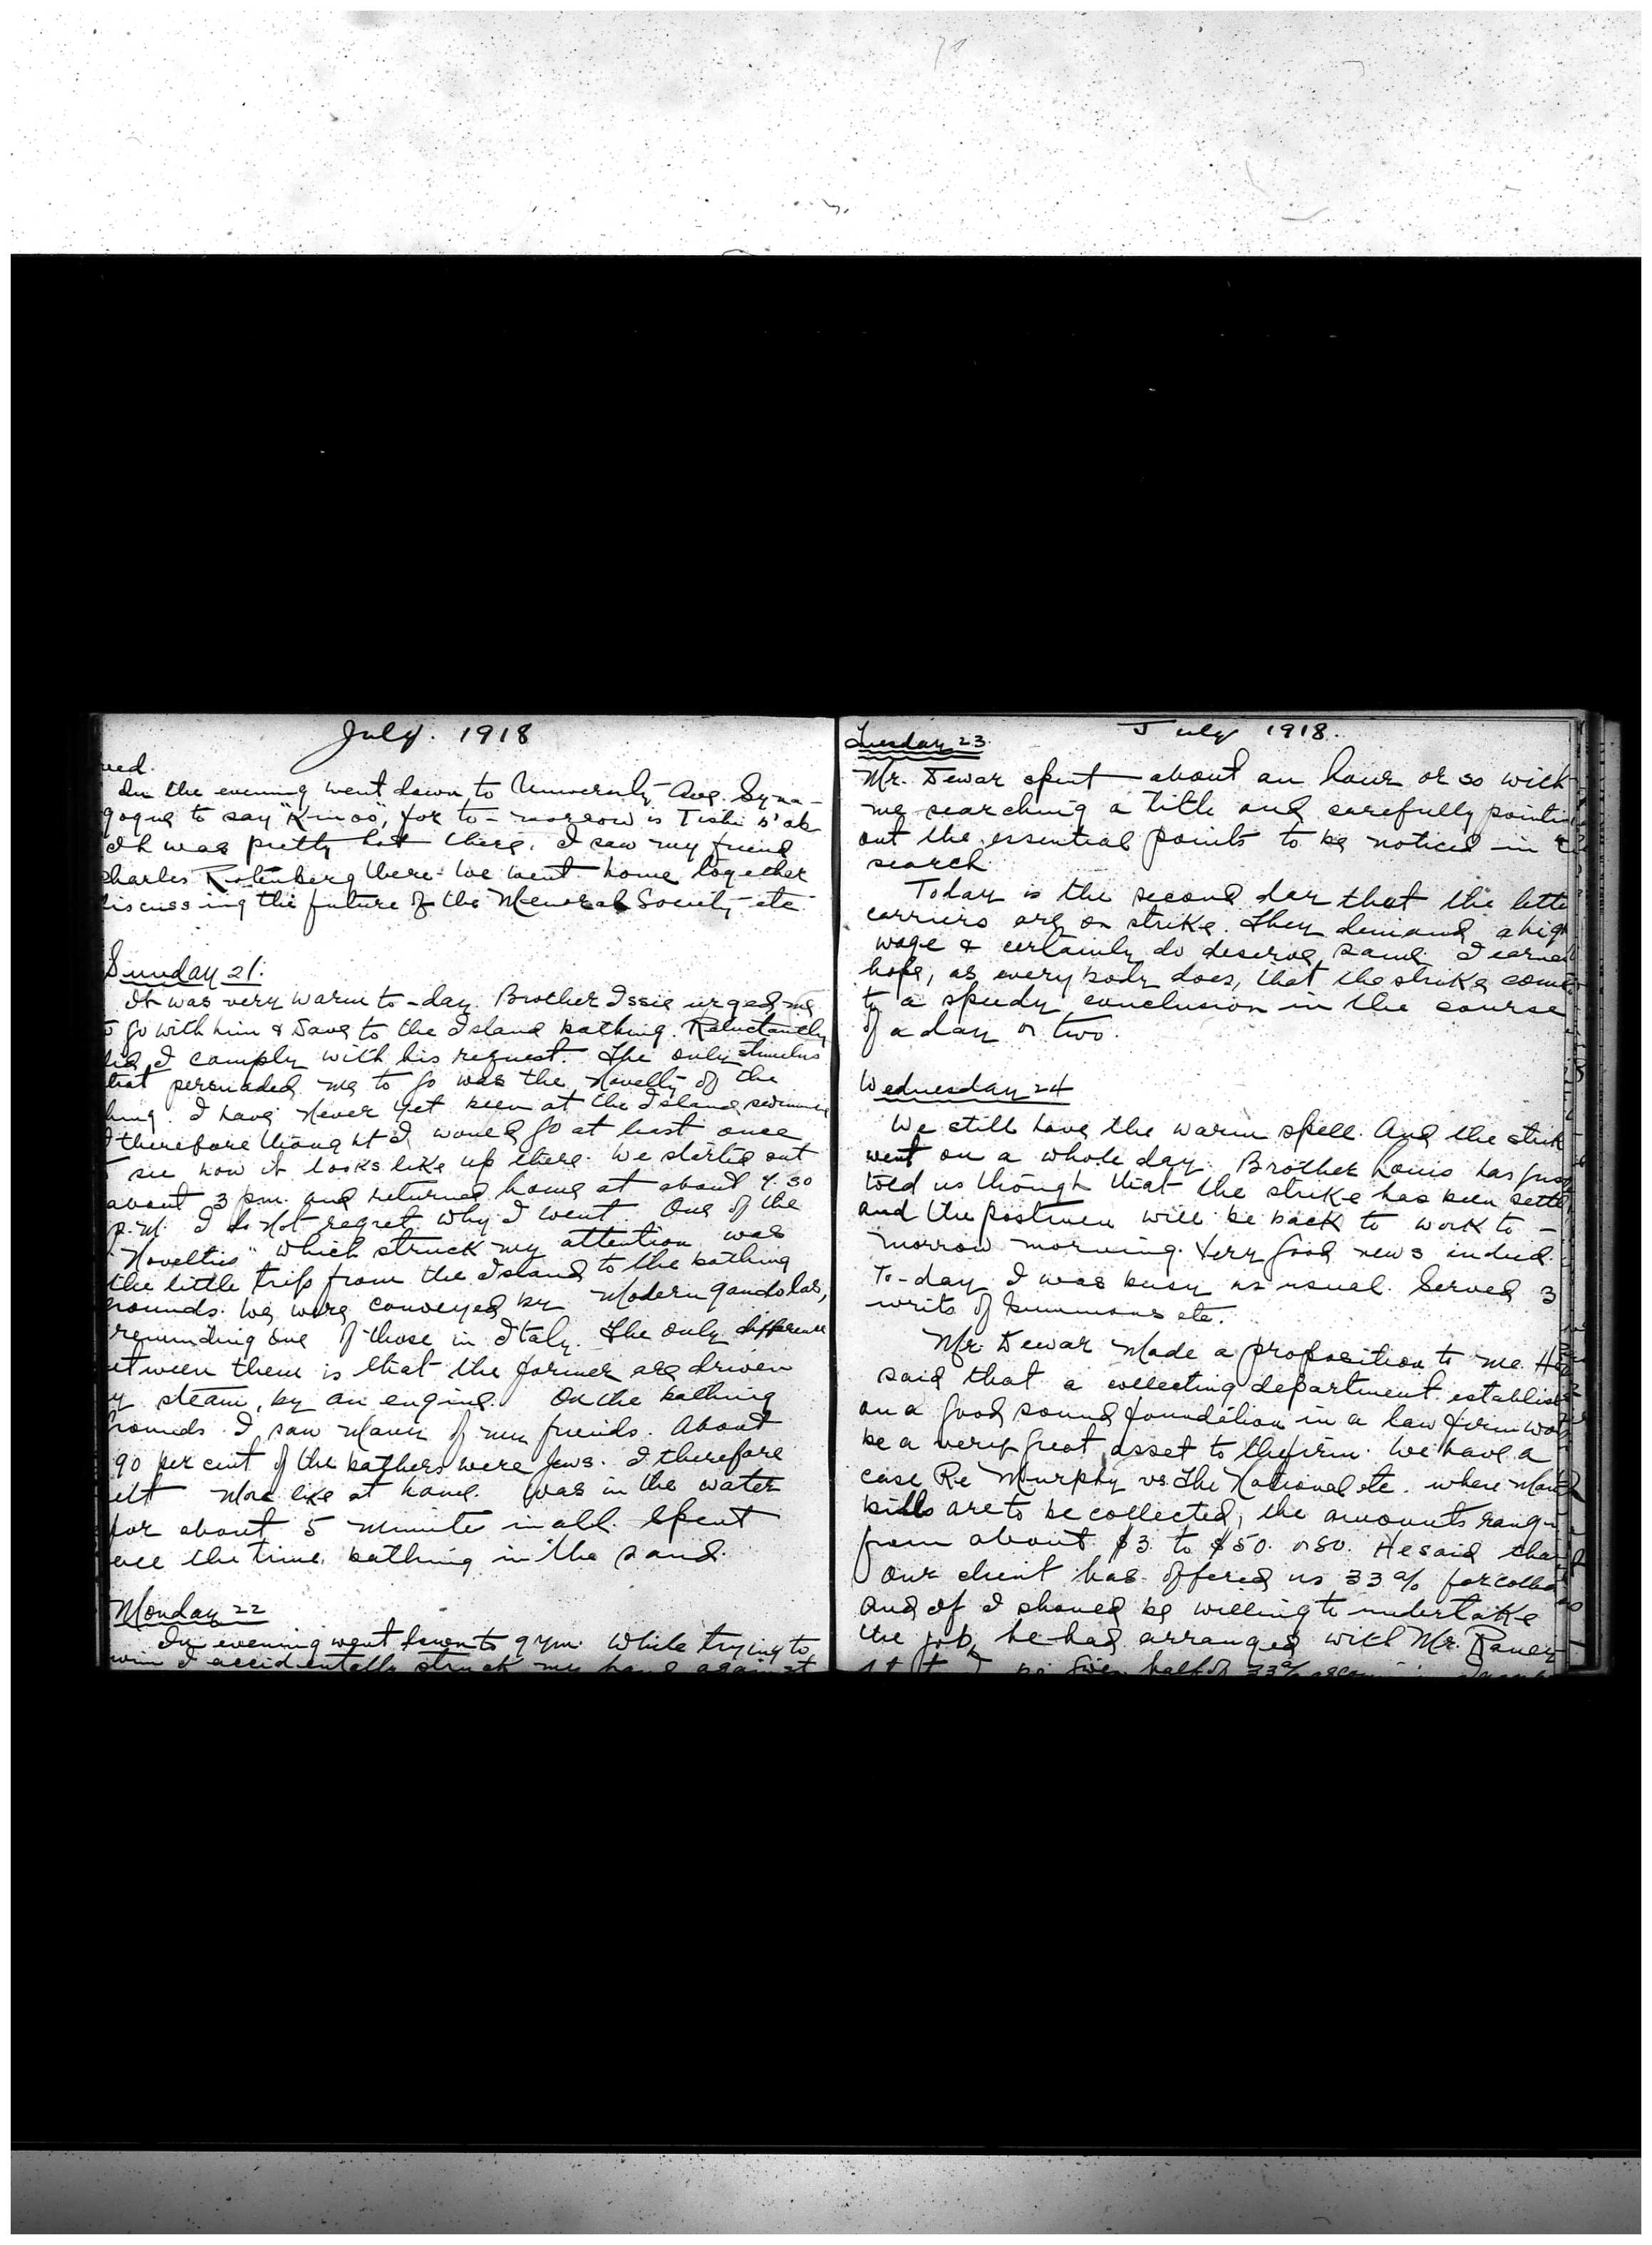 July. 1918
ued.
In the evening went down to University Ave. Syna-
gogue to say "Kinos", for to-morrow is Tishi b'ab
It was pretty hot there. I saw my friend
Charles Rotenberg there. We went home together
discussing the future of the Menorah Society etc.
Sunday 21.
It was very warm to-day. Brother Issie urged me
to go with him & Dave to the Island bathing. Reluctantly
did I comply with his request. The only stimulus
that persuaded me to go was the novelty of the
thing. I have never yet been at the Island swimming
I therefore thought I would go at least once
see how it looks like up there. We started out
about 3 p.m. and returned home at about 7.30
p.m. I do not regret why I went. One of the
"Novelties" which struck my attention was
the little trip from the Island to the bathing
grounds. We were conveyed by modern gandolas,
reminding one of those in Italy. The only difference
between them is that the former are driven
by steam, by an engine. On the bathing
grounds I saw many of my friends. About
90 per cent of the bathers were Jews. I therefore
felt more like at home. Was in the water
for about 5 minute in all. Spent
the time bathing in the sand.
Monday 22
In evening went down to gym. While trying to
swim I accidentally struck my hand against
July 1918.
Tuesday 23.
Mr. Dewar spent about an hour or so with
me searching a title and carefully pointin
out the essential points to be noticed in
search.
Today is the second day that the lette
carriers are on strike. They demand a hig
wage & certainly do deserve same. I earnes
hope, as every body does, that the strike comes
to a speedy conclusion in the course
of a day or two.
Wednesday 24
We still have the warm spell. And the strik
went on a whole day. Brother Louis has jus
told us though that the strike has been settl
and the postmen will be back to work to-
morrow morning. Very good news indeed.
To-day I was busy as usual. Served 3
writs of summons etc.
Mr. Dewar made a proposition to me. He
said that a collecting department establish
on a good sound foundation in a law firm wou
be a very great asset to the firm. We have a
case Re Murphy vs The National etc. where man
bills are to be collected, the amounts rang
from about $3 to $50. or so. He said tha
our client has offered us 33% for
and if I should be willing to undertake
the job, he had arranged with Mr.
be given half of 33%